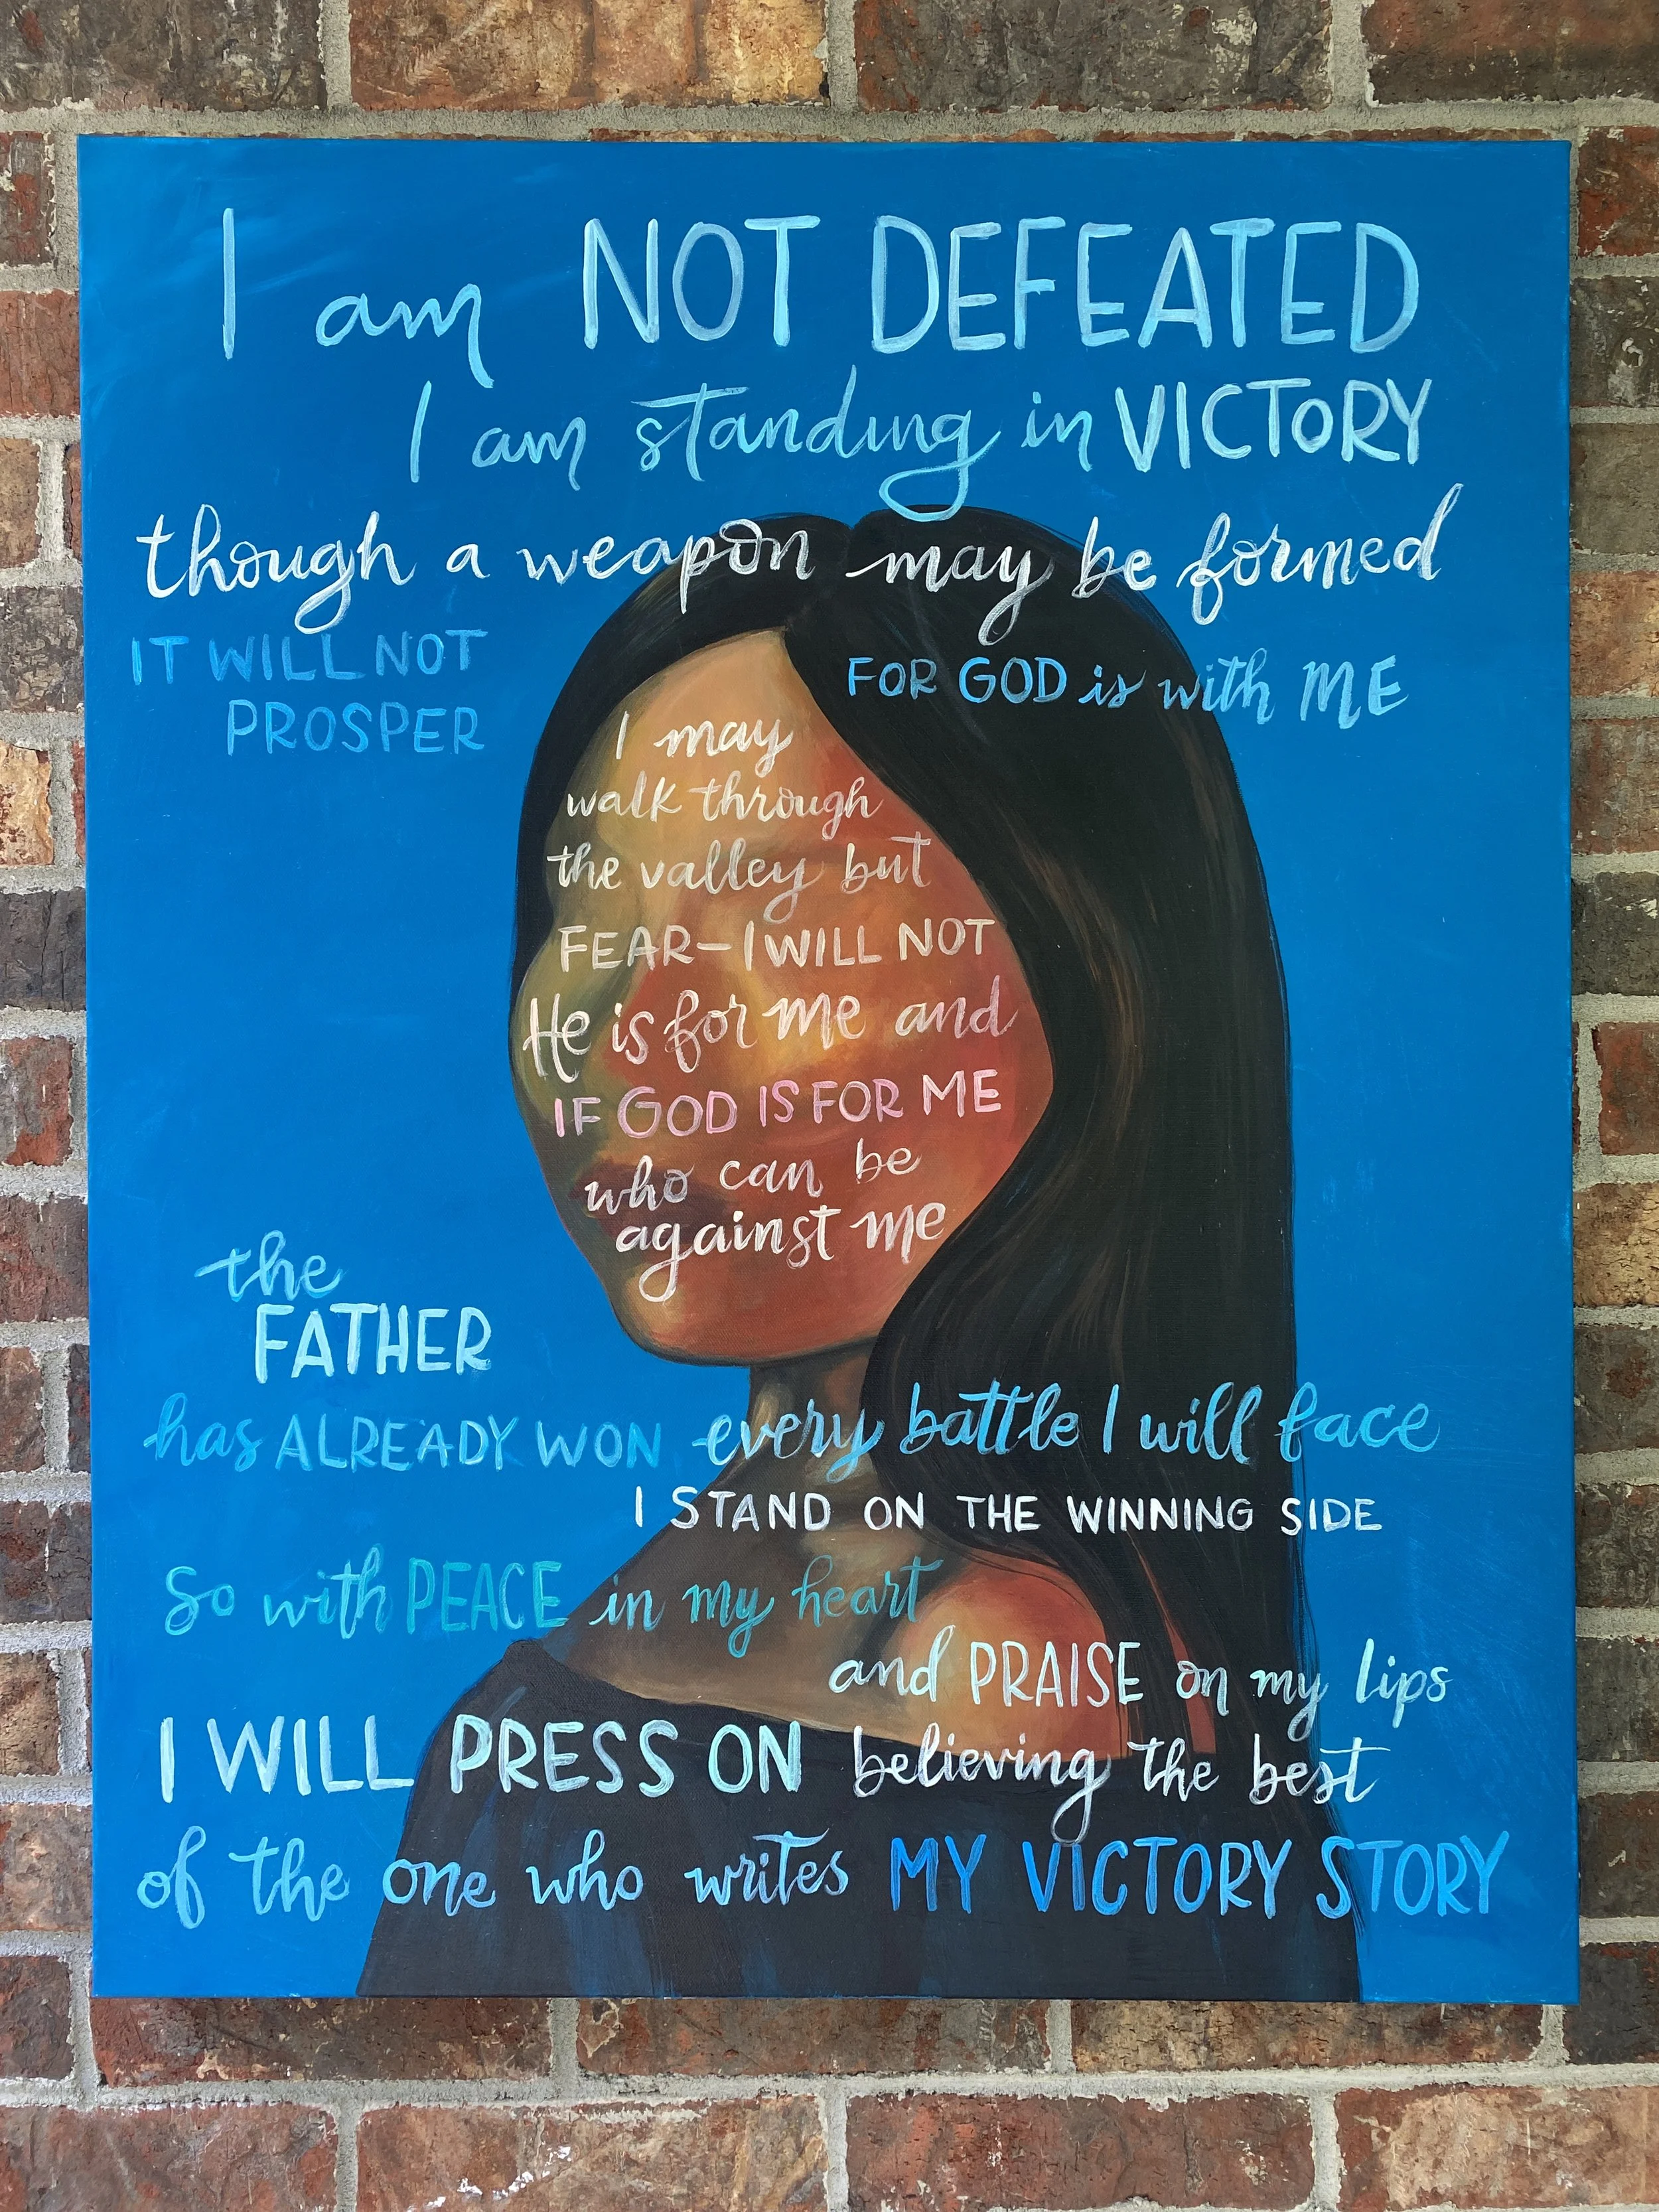 I am NOT DEFEATED
I am standing in VICTORY
though a weapon may be formed
IT WILL NOT
PROSPER
FOR GOD is with ME
I may
walk through
the valley but
FEAR—I WILL NOT
He is for me and
IF GOD IS FOR ME
who can be
against me
the
FATHER
has ALREADY WON every battle I will face
I STAND ON THE WINNING SIDE
So with PEACE in my heart
and PRAISE on my lips
I WILL PRESS ON believing the best
of the one who writes MY VICTORY STORY